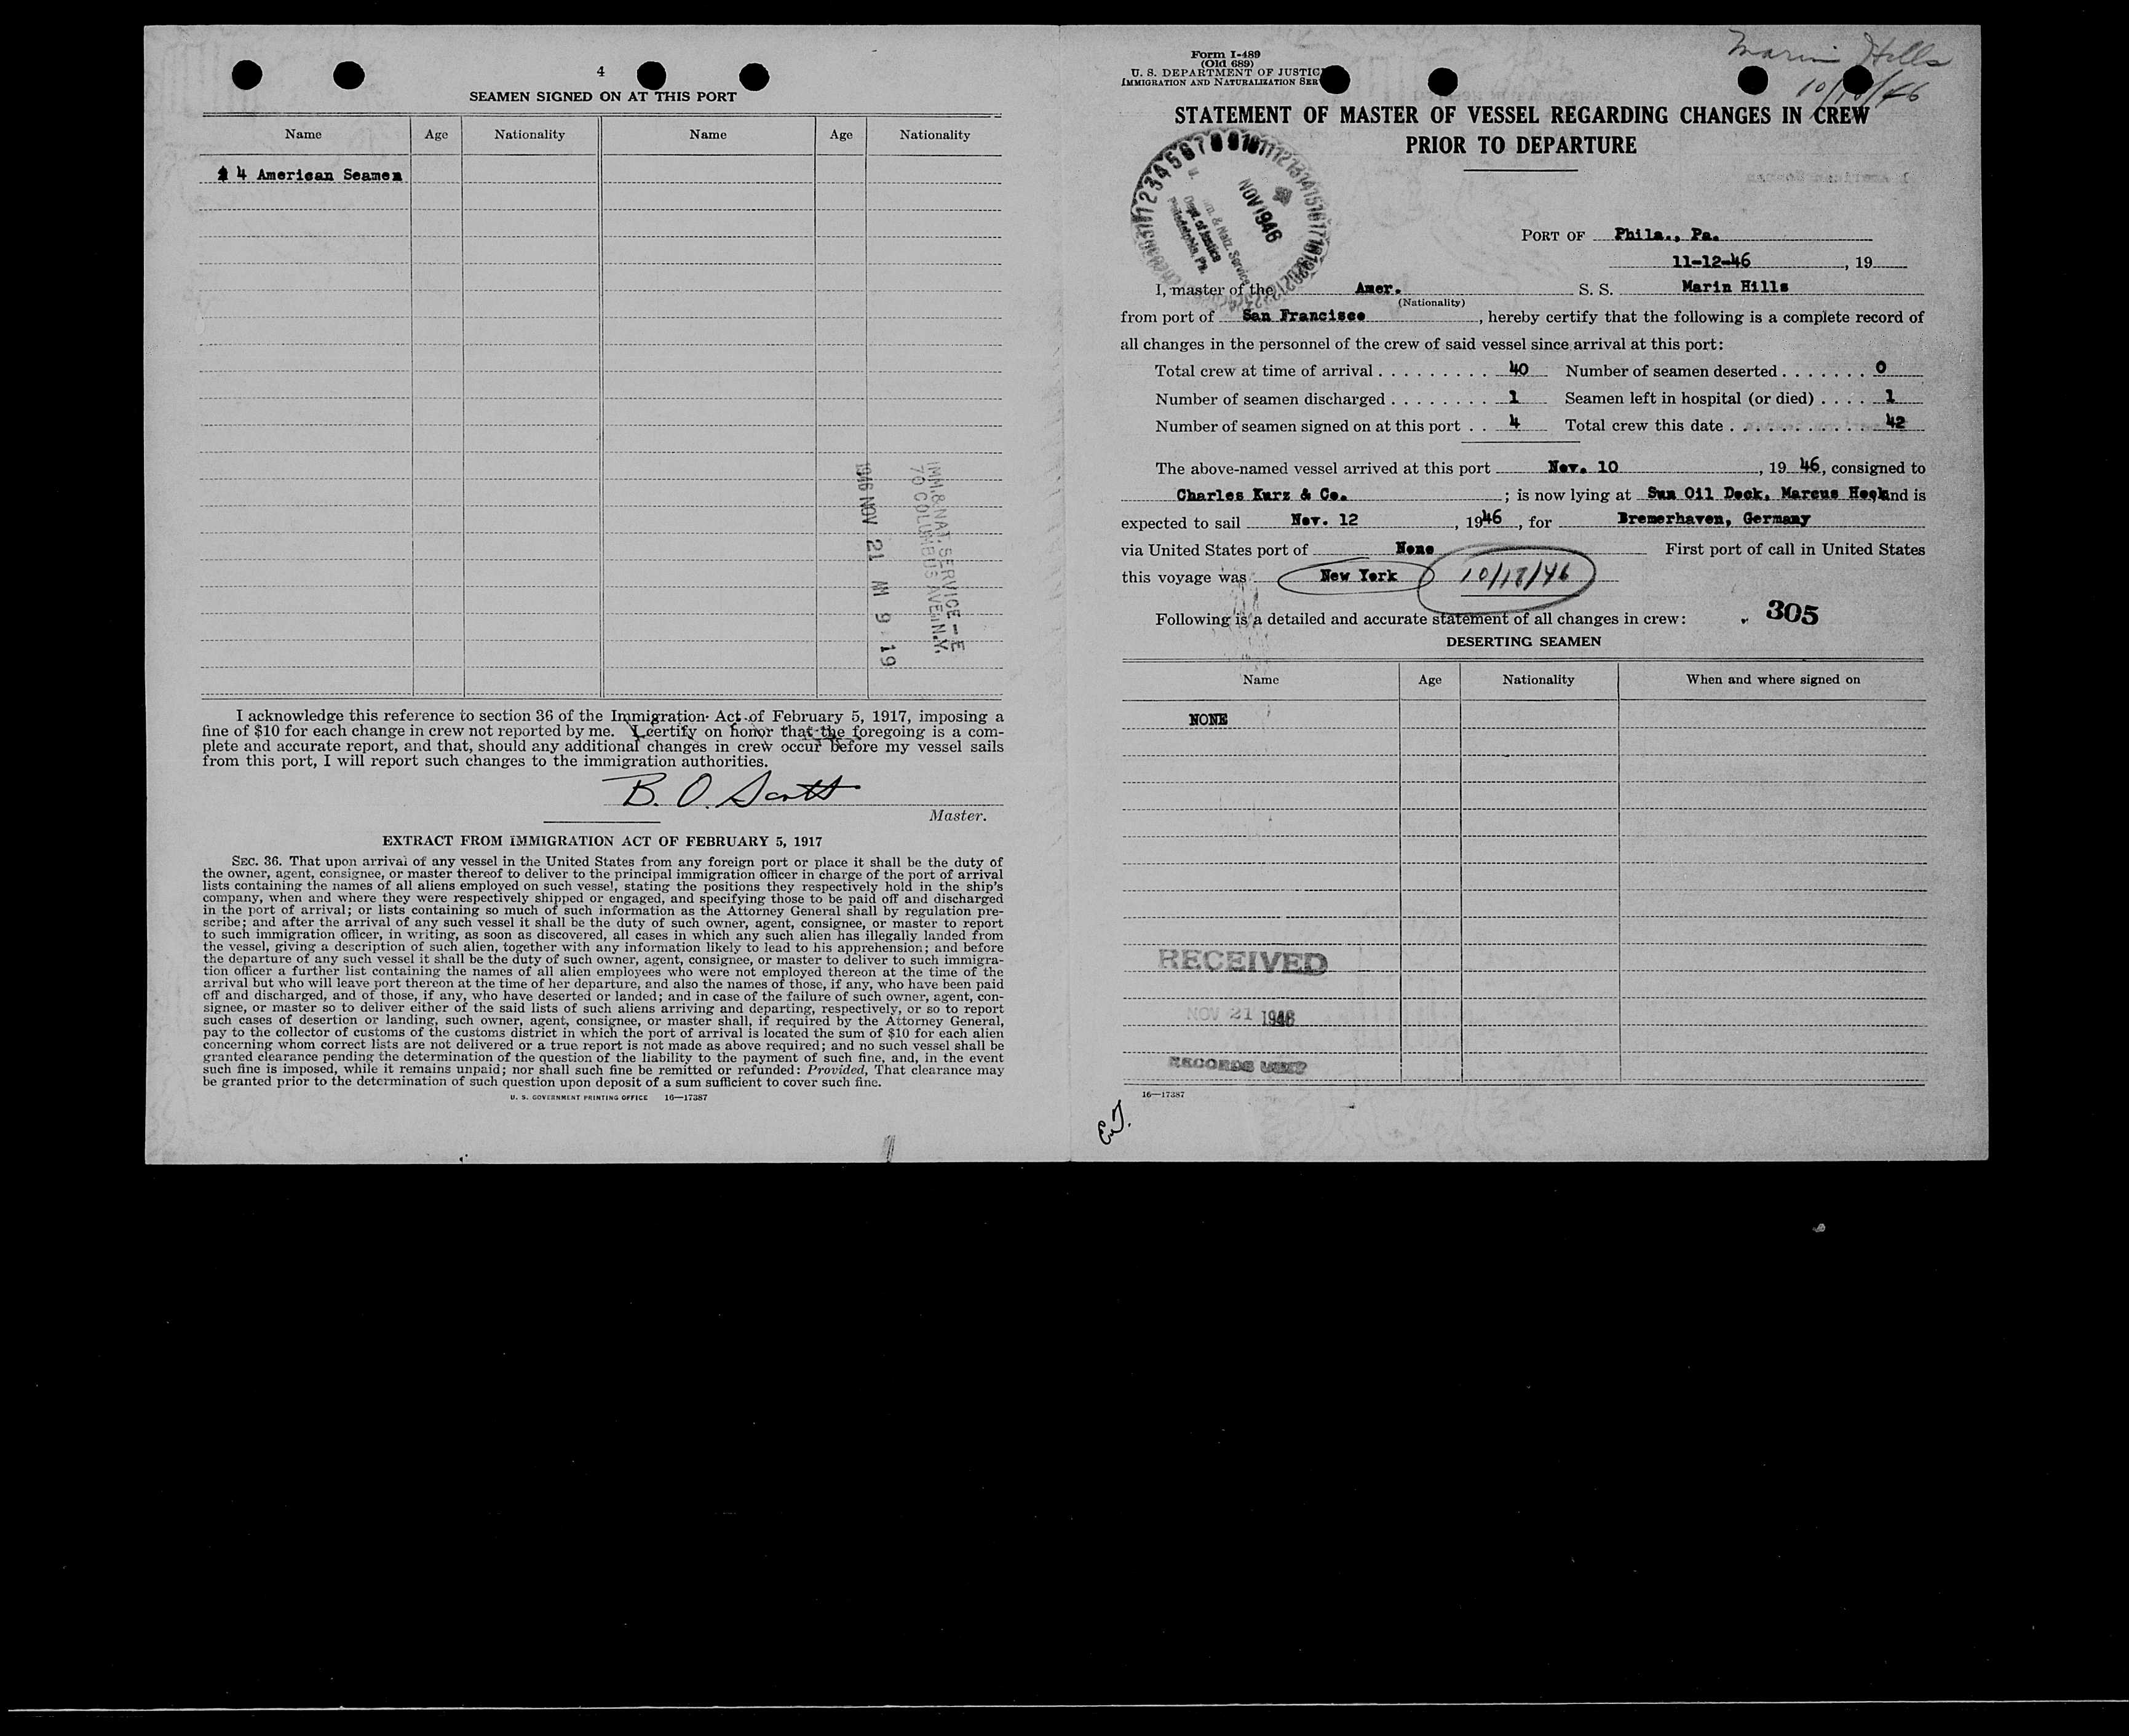 4
SEAMEN SIGNED ON AT THIS PORT
Name Age Nationality Name Age Nationality
4 American Seamen
IMM. & NAT. SERVICE - E
70 COLUMBUS AVE. N.Y.
1946 NOV 21 AM 9 19
I acknowledge this reference to section 36 of the Immigration Act of February 5, 1917, imposing a
fine of $10 for each change in crew not reported by me. I certify on honor that the foregoing is a com-
plete and accurate report, and that, should any additional changes in crew occur before my vessel sails
from this port, I will report such changes to the immigration authorities.
B. O. Scott
Master.
EXTRACT FROM IMMIGRATION ACT OF FEBRUARY 5, 1917
SEC. 36. That upon arrival of any vessel in the United States from any foreign port or place it shall be the duty of
the owner, agent, consignee, or master thereof to deliver to the principal immigration officer in charge of the port of arrival
lists containing the names of all aliens employed on such vessel, stating the positions they respectively hold in the ship's
company, when and where they were respectively shipped or engaged, and specifying those to be paid off and discharged
in the port of arrival; or lists containing so much of such information as the Attorney General shall by regulation pre-
scribe; and after the arrival of any such vessel it shall be the duty of such owner, agent, consignee, or master to report
to such immigration officer, in writing, as soon as discovered, all cases in which any such alien has illegally landed from
the vessel, giving a description of such alien, together with any information likely to lead to his apprehension; and before
the departure of any such vessel it shall be the duty of such owner, agent, consignee, or master to deliver to such immigra-
tion officer a further list containing the names of all alien employees who were not employed thereon at the time of the
arrival but who will leave port thereon at the time of her departure, and also the names of those, if any, who have been paid
off and discharged, and of those, if any, who have deserted or landed; and in case of the failure of such owner, agent, con-
signee, or master so to deliver either of the said lists of such aliens arriving and departing, respectively, or so to report
such cases of desertion or landing, such owner, agent, consignee, or master shall, if required by the Attorney General,
pay to the collector of customs of the customs district in which the port of arrival is located the sum of $10 for each alien
concerning whom correct lists are not delivered or a true report is not made as above required; and no such vessel shall be
granted clearance pending the determination of the question of the liability to the payment of such fine, and, in the event
such fine is imposed, while it remains unpaid; nor shall such fine be remitted or refunded: Provided, That clearance may
be granted prior to the determination of such question upon deposit of a sum sufficient to cover such fine.
U. S. GOVERNMENT PRINTING OFFICE 16—17387
Form I-489
(Old 689)
U. S. DEPARTMENT OF JUSTIC
IMMIGRATION AND NATURALIZATION SER
Marin Hills
STATEMENT OF MASTER OF VESSEL REGARDING CHANGES IN CREW
PRIOR TO DEPARTURE
NOV 1946
Imm. & Natz. Service
Dept. of Justice
Philadelphia, Pa.
PORT OF Phila., Pa.
11-12-46, 19
I, master of the Amer. S. S. Marin Hills
(Nationality)
from port of San Francisco, hereby certify that the following is a complete record of
all changes in the personnel of the crew of said vessel since arrival at this port:
Total crew at time of arrival . . . . . . . . . 40 Number of seamen deserted . . . . . . . 0
Number of seamen discharged . . . . . . . . 1 Seamen left in hospital (or died) . . . . 1
Number of seamen signed on at this port . . 4 Total crew this date . . . . . . . . . . . 42
The above-named vessel arrived at this port Nov. 10, 19 46, consigned to
Charles Kurz & Co.; is now lying at Sun Oil Dock, Marcus Hook and is
expected to sail Nov. 12, 1946, for Bremerhaven, Germany
via United States port of None First port of call in United States
this voyage was New York 10/18/46
Following is a detailed and accurate statement of all changes in crew: 305
DESERTING SEAMEN
Name Age Nationality When and where signed on
NONE
RECEIVED
NOV 21 1946
RECORDS UNIT
16—17387